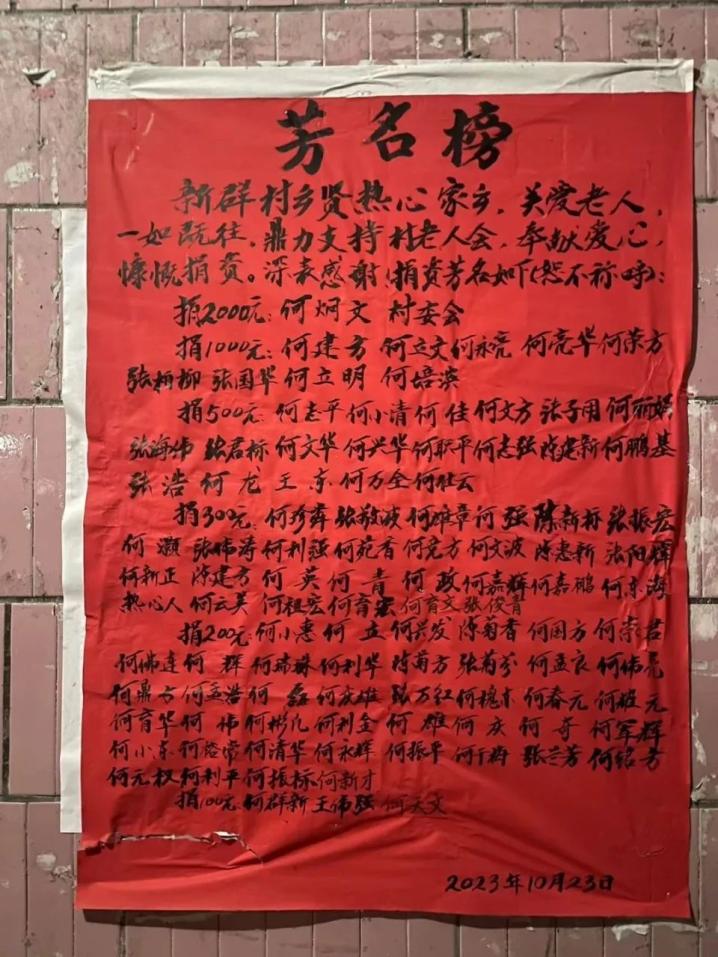 芳名榜
新群村乡贤热心家乡，关爱老人，
一如既往。鼎力支持村老人会，奉献爱心，
慷慨捐资。深表感谢！捐资芳名如下(恕不称呼)：
捐2000元：何炯文 村委会
捐1000元：何建方 何立文 何永亮 何亮华 何荣方
张柳柳 张国华 何立明 何培滨
捐500元：何志平 何小清 何佳 何文方 张子用 何丽娟
张海伟 张君标 何文华 何兴华 何职平 何志强 陈建新 何鹏基
张浩 何龙 王东 何万全 何壮云
捐300元：何珍舜 张敬波 何雄章 何强 陈新标 张振宏
何灏 张伟涛 何利强 何苑香 何竞方 何文波 陈惠新 张阳辉
何新正 陈建方 何英 何青 何政 何嘉辉 何嘉鹏 何东海
热心人 何云美 何祖宏 何育宏 何育文 张俊青
捐200元：何小惠 何立 何兴发 陈菊香 何国方 何崇君
何伟连 何群 何瑞珠 何利华 陈菊方 张菊芬 何孟良 何伟亮
何鼎方 何孟浩 何磊 何庆雄 张万红 何槐东 何春元 何雄元
何育华 何伟 何彬凡 何利金 何雄 何庆 何奇 何军辉
何小东 何 常 何清华 何永辉 何振平 何于梅 张兰芳 何绍方
何元权 何利平 何振标 何新才
捐100元：何群新 王伟强 何天文
2023年10月23日